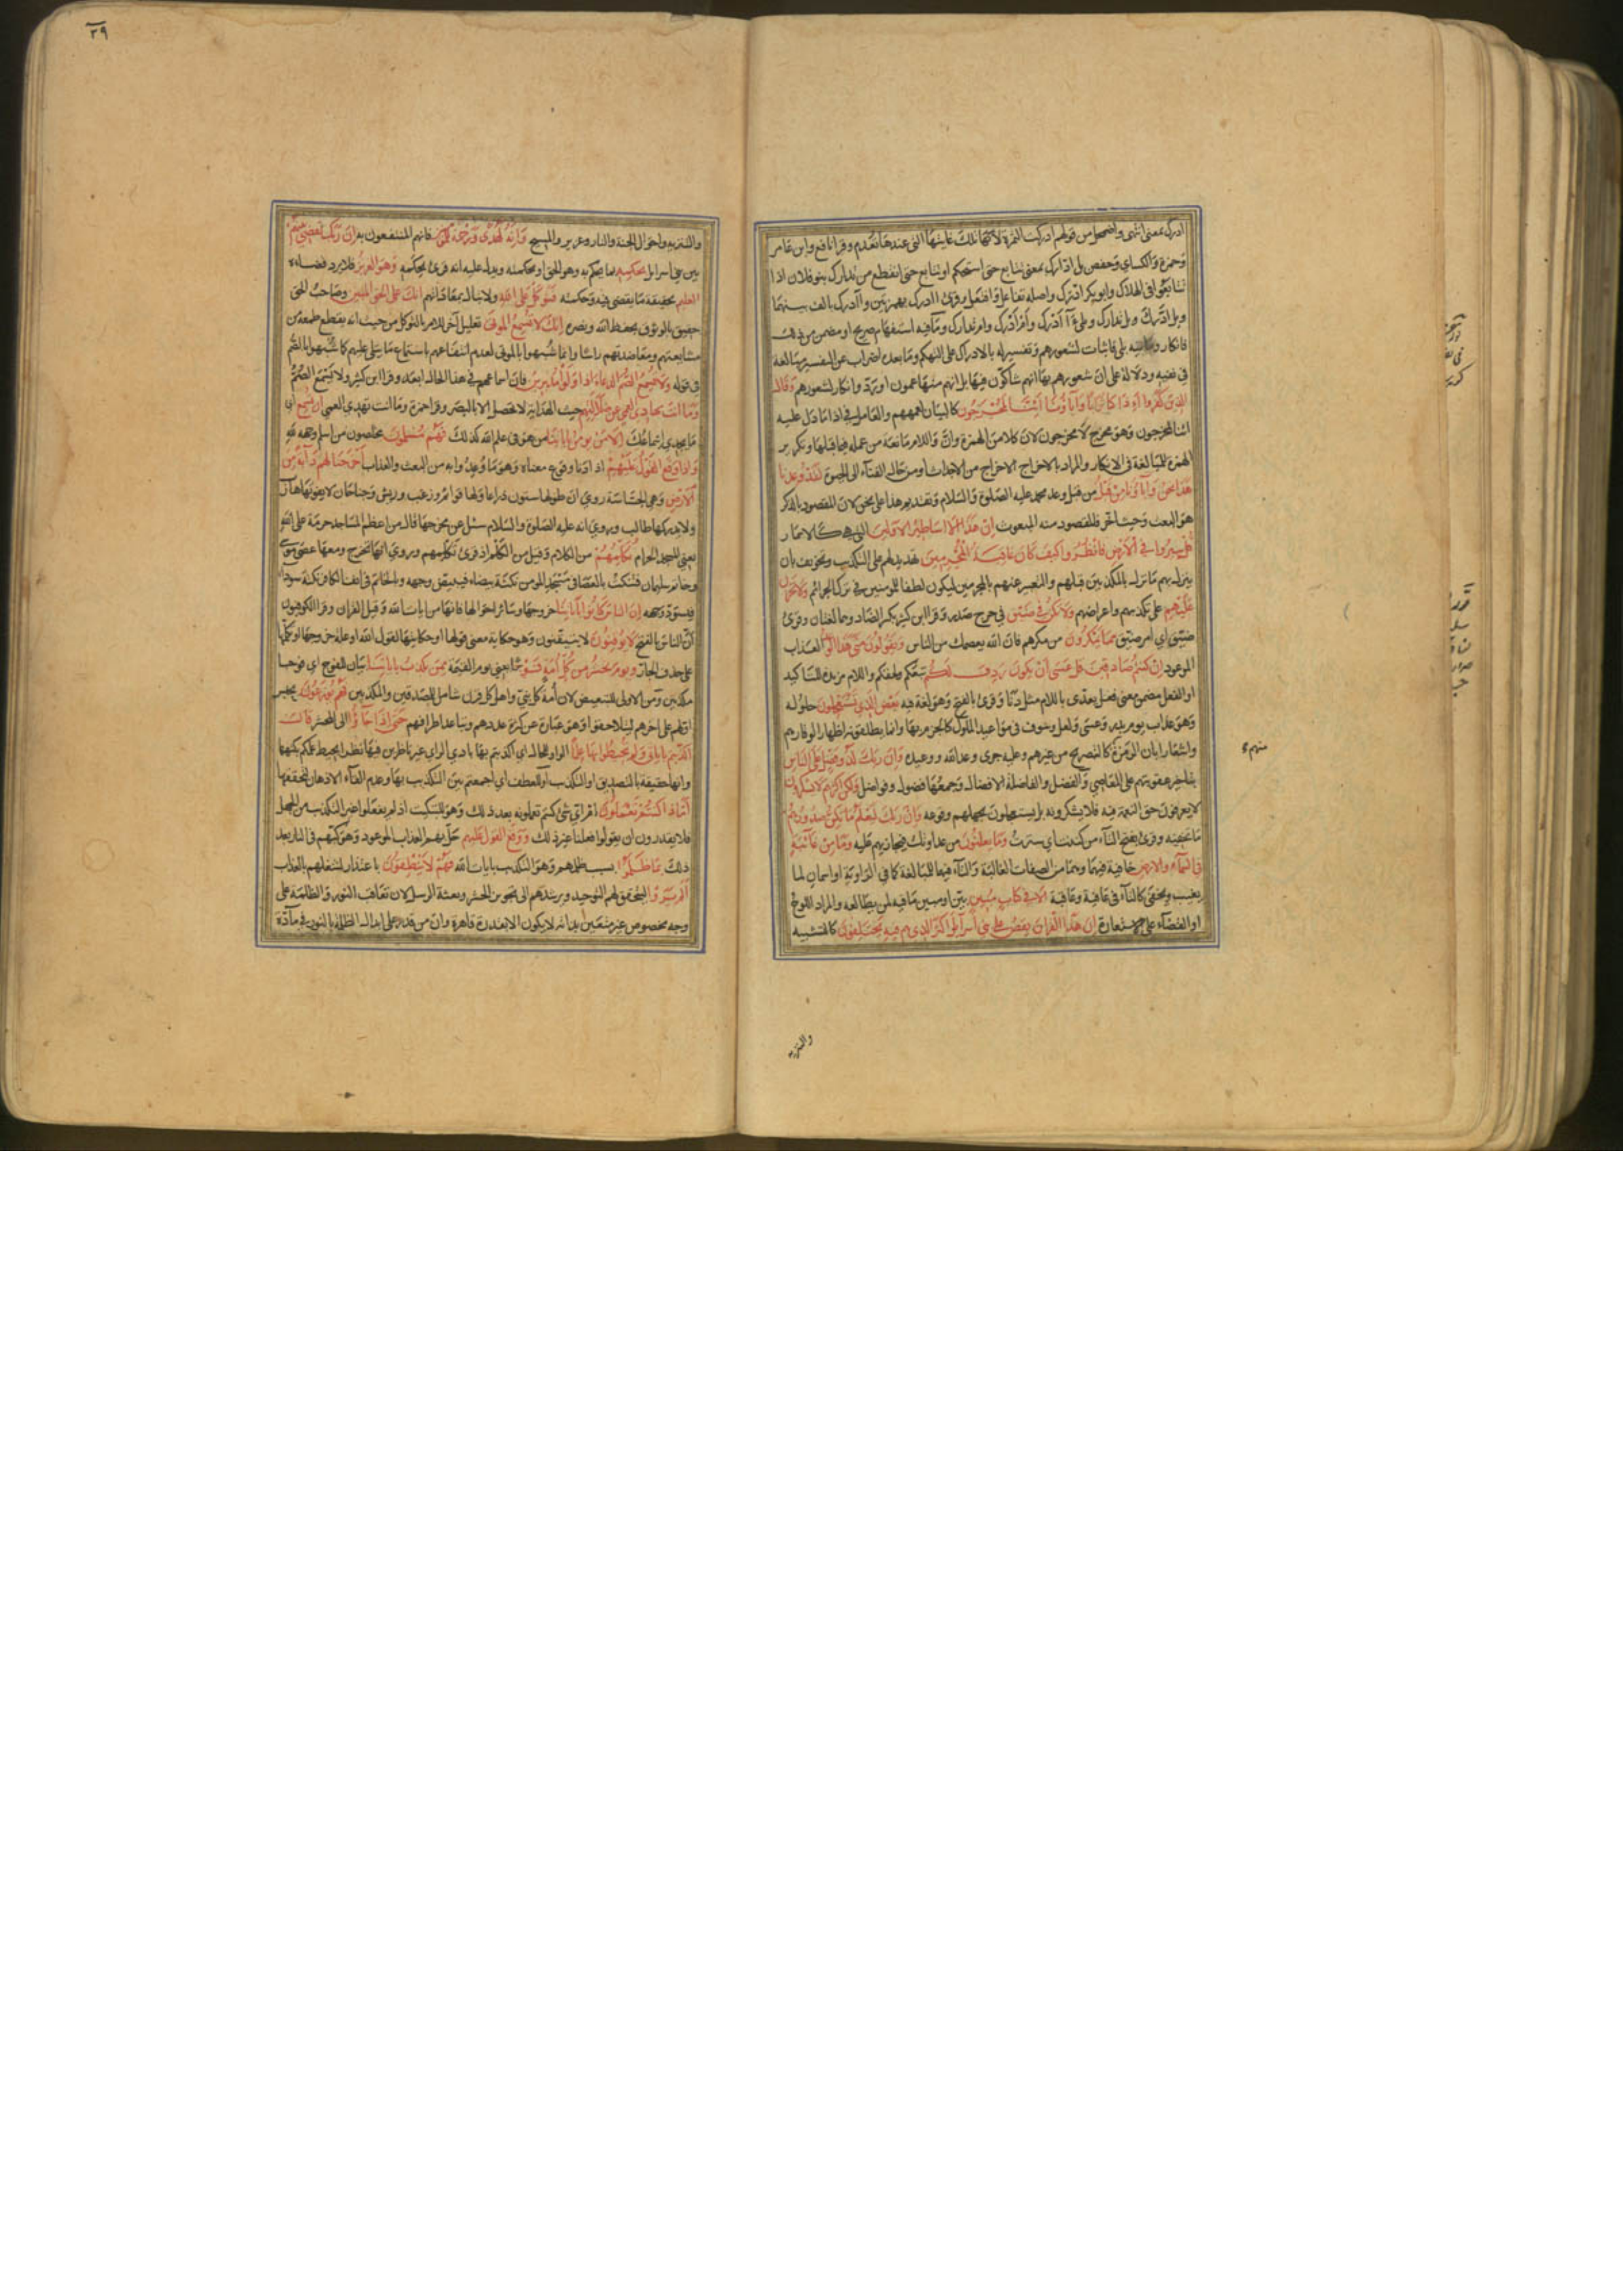 ادرك بمعنى انتهى واضمحل من قولهم ادركت الثمرة لانها تلك غايتها التي عندها تعدم وقرا نافع وابن عامر
وحمزة والكساي وحفص بل ادارك بمعنى تتابع حتى استحكم او تتابع حتى انقطع من تدارك بنو فلان اذا
تتابعوا في الهلاك وابو بكر ادّرك واصله تفاعل وافتعل وقرئ اادرك بهمزتين وآادرك بالف بينهما
وبل ادّرك وبل تدارك وبلى ءآدرك وام ادرك وام تدارك وما فيه استفهام صريح او مضمن من ذلك
فانكار وما فيه بلى فاثبات لشعورهم وتفسير له بالادراك على التهكم وما بعده اضراب عن التفسير مبالغة
في نفيه ودلالة على ان شعورهم بها انهم شاكّون فيها بل انهم منها عمون او ردّ وانكار لشعورهم وقال
الذين كفروا أءذا كنا ترابا وآباؤنا أئنا لمخرجون كالبيان لعمههم والعامل في اذا ما دل عليه
ائنا لمخرجون وهو مخرج لا مخرجون لان كلا من الهمزة وانّ واللام مانعة من عمله فيما قبلها وتكرير
الهمزة للمبالغة في الانكار والمراد بالاخراج الاخراج من الاجداث او من حال الفناء الى الحيوة لقد وعدنا
هذا نحن وآباؤنا من قبل من قبل وعد محمد عليه الصلوة والسلام وتقديم هذا على نحن لان المقصود بالذكر
هو البعث وحيث اخر فالمقصود منه المبعوث ان هذا الا اساطير الاولين التي هي كالاسمار
قل سيروا في الارض فانظروا كيف كان عاقبة المجرمين تهديد لهم على التكذيب وتخويف بان
ينزل بهم ما نزل بالمكذبين قبلهم والتعبير عنهم بالمجرمين ليكون لطفا للمومنين في ترك الجرائم ولا تحزن
عليهم على تكذيبهم واعراضهم ولا تكن في ضيق في حرج صدر وقرا ابن كثير بكسر الضاد وهما لغتان وقرئ
ضيّق اي امر ضيّق مما يمكرون من مكرهم فان الله يعصمك من الناس ويقولون متى هذا الوعد العذاب
الموعود ان كنتم صادقين قل عسى ان يكون ردف لكم تبعكم ولحقكم واللام مزيدة للتاكيد
او الفعل مضمن معنى فعل يعدّى باللام مثل دنا وقرئ بالفتح وهو لغة فيه بعض الذي تستعجلون حلوله
وهو عذاب يوم بدر وعسى ولعل وسوف في مواعيد الملوك كالجزم بها وانما يطلقونه اظهارا لوقارهم
واشعارا بان الرمزة كالتصريح من غيرهم وعليه جرى وعد الله ووعيده وان ربك لذو فضل على الناس
بتاخير عقوبتهم على المعاصي والفضل والفاضلة الافضال وجمعها فضول وفواضل ولكن اكثرهم لا يشكرون
لا يعرفون حق النعمة فيه فلا يشكرونه بل يستعجلون بجهلهم وقوعه وان ربك ليعلم ما تكن صدورهم
ما تخفيه وقرئ بفتح التاء من كننت اي سترت وما يعلنون من عداوتك فيجازيهم عليه وما من غائبة
في السماء والارض خافية فيهما وهما من الصفات الغالبة والتاء فيهما للمبالغة كما في الراوية او اسمان لما
يغيب ويخفى كالتاء في عافية وعاقبة الا في كتاب مبين بيّن او مبين ما فيه لمن يطالعه والمراد اللوح
او القضاء على الاستعارة ان هذا القرآن يقص على بني اسرآيل اكثر الذي هم فيه يختلفون كالتشبيه
منهم
والتنزيه
٣٩
والتنزيه واحوال الجنة والنار وعزير والمسيح وانه لهدى ورحمة للمومنين فانهم المنتفعون به ان ربك يقضي بينهم
بين بني اسرايل بحكمه بما يحكم به وهو الحق او بحكمته ويدل عليه انه قرئ بحكمه وهو العزيز فلا يرد قضاءه
العليم بحقيقة ما يقضى فيه وحكمته فتوكل على الله ولا تبال بمعاداتهم انك على الحق المبين وصاحب الحق
حقيق بالوثوق بحفظ الله ونصره انك لا تسمع الموتى تعليل آخر للامر بالتوكل من حيث انه يقطع طمعه من
مشايعتهم ومعاضدتهم راسا وانما شبهوا بالموتى لعدم انتفاعهم باستماع ما يتلى عليهم كما شبهوا بالصم
في قوله ولا تسمع الصم الدعاء اذا ولوا مدبرين فان اسماعهم في هذا الحالة ابعد وقرا ابن كثير ولا يسمع الصمّ
وما انت بهادي العمي عن ضلالتهم حيث الهداية لا تحصل الا بالبصر وقرا حمزة وما انت تهدي العمي ان تسمع اي
ما يجدي اسماعك الا من يومن باياتنا من هو في علم الله كذلك فهم مسلمون مخلصون من اسلم وجهه لله
واذا وقع القول عليهم اذا دنا وقوع معناه وهو ما وعدوا به من البعث والعذاب اخرجنا لهم دآبة من
الارض وهي الجساسة روي ان طولها ستون ذراعا ولها قوائم وزغب وريش وجناحان لا يفوتها هارب
ولا يدركها طالب وروي انه عليه الصلوة والسلام سئل عن مخرجها فقال من اعظم المساجد حرمة على الله
يعني المسجد الحرام تكلمهم من الكلام وقيل من الكلم اذ قرئ تكلمهم وروي انها تخرج ومعها عصى موسى
وخاتم سليمان فتنكت بالعصا في مسجد المومن نكتة بيضاء فيبيض وجهه وبالخاتم في انف الكافر نكتة سوداء
فيسود وجهه ان الناس كانوا باياتنا خروجها وسائر احوالها فانها من ايات الله وقيل القران وقرا الكوفيون
انّ الناس بالفتح لا يوقنون لا يتيقنون وهو حكاية معنى قولها او حكايتها لقول الله او علة خروجها او تكلمها
على حذف الجار ويوم نحشر من كل امة فوجا يعني يوم القيمة ممن يكذب باياتنا بيان للفوج اي فوجا
مكذبين ومن الاولى للتبعيض لان امة كل نبي واهل كل قرن شامل للمصدقين والمكذبين فهم يوزعون يحبس
اولهم على اخرهم ليتلاحقوا وهو عبارة عن كثرة عددهم وتباعد اطرافهم حتى اذا جاؤا الى المحشر قال
اكذبتم باياتي ولم تحيطوا بها علما الواو للحال اي اكذبتم بها بادي الراي غير ناظرين فيها نظرا يحيط علمكم بكنهها
وانها حقيقة بالتصديق او التكذيب او للعطف اي اجمعتم بين التكذيب بها وعدم القاء الاذهان لتحققها
امّاذا كنتم تعملون ام اي شئ كنتم تعملونه بعد ذلك وهو للتبكيت اذ لم يفعلوا غير التكذيب من الجهل
فلا يقدرون ان يقولوا فعلنا غير ذلك ووقع القول عليهم حل بهم العذاب الموعود وهو كبهم في النار بعد
ذلك بما ظلموا بسبب ظلمهم وهو التكذيب بايات الله فهم لا ينطقون باعتذار لشغلهم بالعذاب
الم يروا ليتحقق لهم التوحيد ويرشدهم الى تجويز الحشر وبعثة الرسل لان تعاقب النور والظلمة على
وجه مخصوص غير متعين بذاته لا يكون الا بقدرة قاهرة وان من قدر على ابدال الظلمة بالنور في مادّة